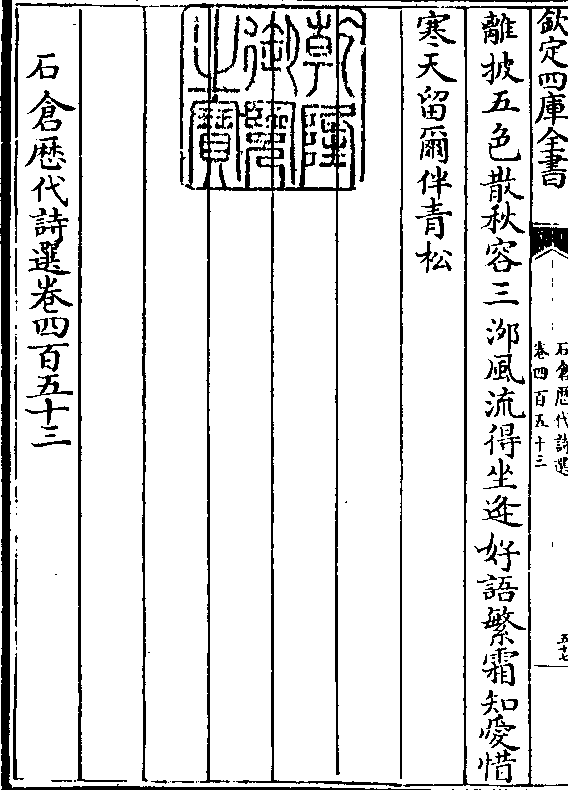 欽定四庫全書
石倉厯代詩選
卷四百五十三
五十七
離披五色散秋容三泖風流得坐逢好語繁霜知愛惜
寒天留爾伴青松
乾隆
御覽
之寶
石倉厯代詩選卷四百五十三